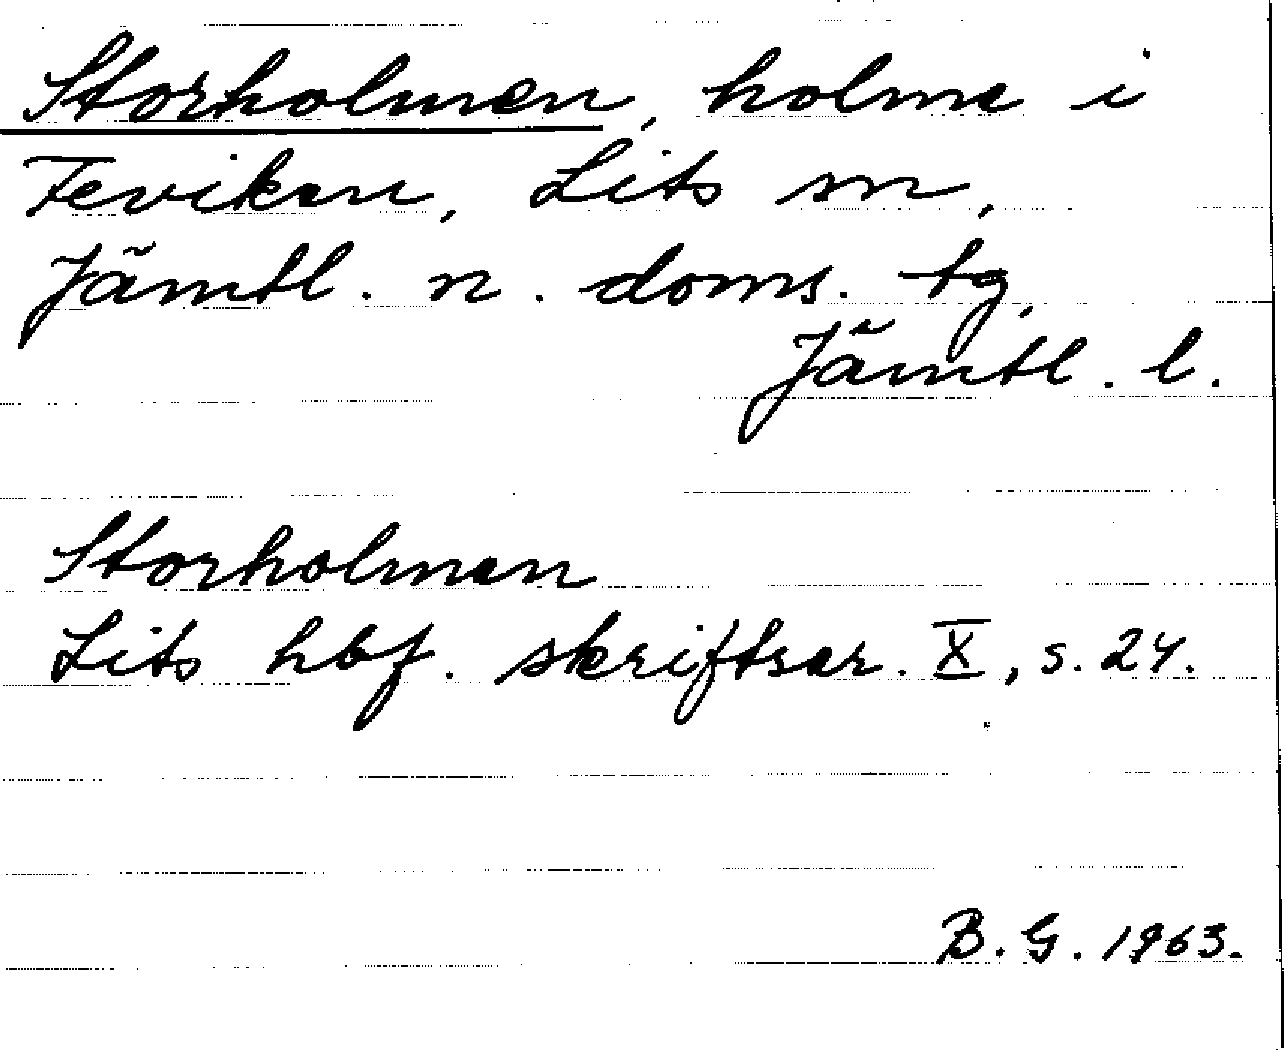 Storholmen, holme i
Feviken, Lits sn,
Jämtl. n. doms. tg,
Jämtl. l.
Storholmen
Lits hbf. skriftser. X, s. 24.
B. G. 1963.